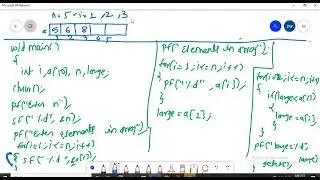 Microsoft Whiteboard
n=5 i=1,2,3
5 6 8
1 2 3 4 5
void main()
{
int i, a[50], n, large;
clrscr();
pf("Enter n");
sf("%d", &n);
pf("Enter elements in array");
{ sf("%d", &a[i]);
pf("Elements in array");
for(i=1; i<=n; i++)
{ pf("%d", a[i]);
}
large=a[1];
for(i=1; i<=n; i++)
{
if(large<a[i])
{
large=a[i];
}
}
pf("large=%d",
getch();